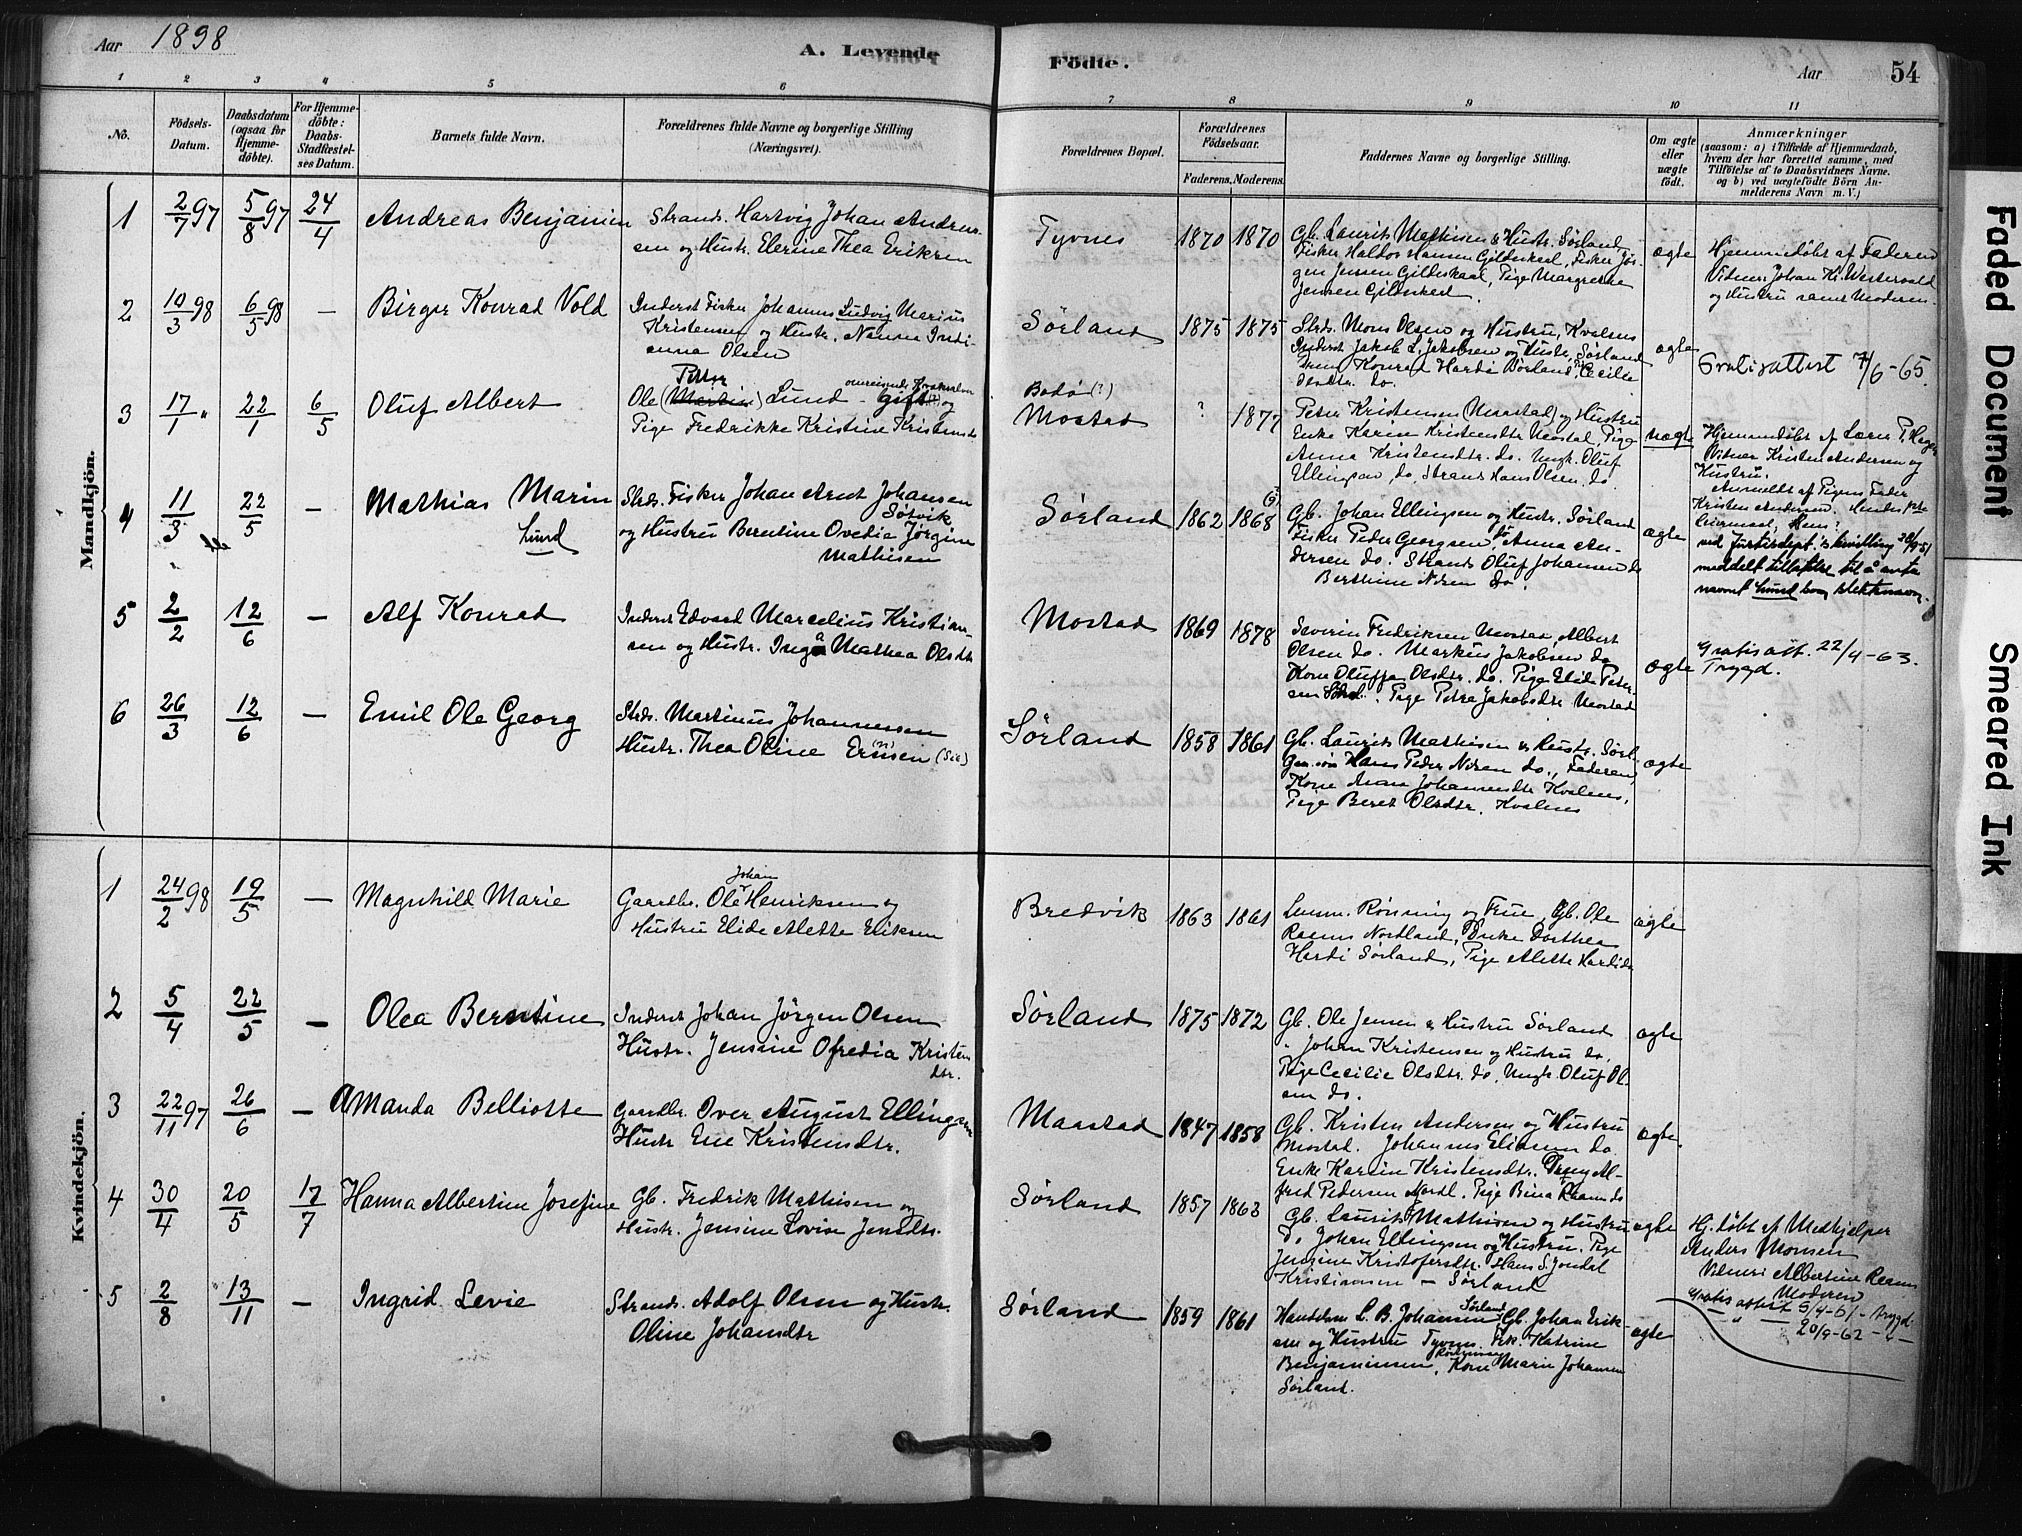 Aar 1898
A. Levende
Födte.
Aar
54
1 2 3 4 5 6 7 8 9 10 11
No.
Födsels-
Datum.
Daabsdatum
(ogsaa for
Hjemme-
döbte).
For Hjemme-
döbte:
Daabs-
Stadfæstel-
ses Datum.
Barnets fulde Navn.
Forældrenes fulde Navne og borgerlige Stilling
(Næringsvei).
Forældrenes Bopæl.
Forældrenes
Födselsaar.
Faderens. Moderens.
Faddernes Navne og borgerlige Stilling.
Om ægte
eller
uægte
födt.
Anmærkninger
(saasom: a) i Tilfælde af Hjemmedaab,
hvem der har forrettet samme, med
Tilföielse af to Daabsvidners Navne.
og b) ved uægtefödte Börn An-
melderens Navn m. V.)
Mandkjön.
1 2/7 97 5/8 97 24/4
Andreas Benjamin
Strands. Hartvig Johan Andrea-
sen og Hustr. Elerine Thea Eriksen
Tyvnes 1870 1870
Gb. Laurits Mathisen & Hustr. Sørland,
Fisker Haldor Hansen Gildeskaal, Fisker Jør-
gen Jensen Gildeskaal, Pige Margrethe
Jensen Gildeskaal.
ægte
Hjemmedøbt af Faderen
Vidner Johan Kr. Westervold
og Hustru samt Moderen.
2 10/3 98 6/5 98 —
Birger Konrad Vold
Inderst Fisker Johannes Ludvig Marius
Kristensen og Hustr. Nanna Indi-
anna Olsen
Sørland 1875 1875
Strds. Mons Olsen og Hustru, Kvalnes
Inderst Jakob L. Jakobsen og Hustr. Sørland
Konrad Hardi Sørland, Cecilie
Olsdtr. do.
ægte
Gratisattest 4/6-65.
3 17/1 " 22/1 6/5
Oluf Albert
Ole (Martin) Peter Lund - omreisende - gift og
Pige Fredrikke Kristine Kristensdtr
Bodø (?)
Mostad ? 1877
Peter Kristensen (Maastad) og Hustru
Enke Karen Kristensdtr Mostad, Pige
Anna Kristensdtr. do. Ungk. Oluf
Ellingsen do, Strands Hans Olsen do
uægte
Hjemmedøbt af Lærer P. Hager
Vidner Kristen Andersen og
Hustru.
Anmeldt af Pigens Fader
Kristen Andersen. Hendes 1ste
Leiermaal, Hans?
4 11/3 22/5 —
Mathias Marin
Lund
Strds. Fisker Johan Arnt Johansen
Søtvik
og Hustru Berntine Ovedia Jørgine
Mathisen
Sørland 1862 1868
Gb. Johan Ellingsen og Hustr. Sørland
Fisker Peder Georgsen do, Anna An-
dersen do. Strands Oluf Johansen do
Berthine Nilsen do.
ægte
ved Justisdept.'s bevilling 20/9 51
meddelt tillatelse til å anta
navnet Lund som slektsnavn.
5 2/2 12/6 —
Alf Konrad
Inderst Edvard Marcelius Kristian-
sen og Hustr. Inga Mathea Olsdtr
Mostad 1869 1878
Severin Fredriksen Mostad, Albert
Olsen do. Markus Jakobsen do
Kone Oluffa Olsdtr. do. Pige Elida Peter-
sen Sørl.. Pige Petra Jakobsdtr Mostad
ægte
Gratis att. 22/4-63.
Trygd.
6 26/3 12/6 —
Emil Ole Georg
Strds. Martinus Johannessen
Hustr. Thea Oline Ernsen (Sic)
Sørland 1858 1861
Gb. Laurits Mathisen & Hustr. Sørl.
Hans Peder Nilsen do., Faderen,
Kone Anna Johannesdtr Kvalnes,
Pige Beret Olsdtr. Kvalnes
ægte
Kvindekjön.
1 24/2 98 19/5 —
Magnhild Marie
Gaardbr. Ole Johan Henriksen og
Hustru Elide Alette Eriksen
Bredvik 1863 1861
Lensm. Rønning og Frue, Gb. Ole
Rasmus Nordland, Enke Dorthea
Hardi Sørland, Pige Alette Hardi do
ægte
2 5/4 22/5 —
Olea Berntine
Inderst Johan Jørgen Olsen
Hustr. Jensine Ofredia Kristen
dtr.
Sørland 1875 1872
Gb. Ole Jensen & Hustru Sørland
" Johan Kristensen og Hustru do,
Pige Cecilie Olsdtr. do, Ungk. Oluf Ol-
sen do.
ægte
3 22/11 97 26/6 —
Amanda Belliotte
Gaardbr. Over August Ellingsen
Hustr Ene Kristensdtr.
Maastad 1847 1858
Gb. Kristen Andersen og Hustru
Mostad. Johannes Eliassen do
Enke Karen Kristensdtr. Al-
fred Pedersen Nordl. Pige Bina Rasm. do
ægte
4 30/4 20/5 17/7
Hanna Albertine Josefine
Gb. Fredrik Mathisen og
Hustr. Jensine Lovise Jensdtr.
Sørland 1857 1863
Gb. Laurits Mathisen og Hustru
do Johan Ellingsen og Hustru. Pige
Jensine Kristofersdtr. Hans S. Jondal
Kristiansen — Sørland
ægte
Hj. døbt af Medhjelper
Anders Monsen
Vidner: Albertine Rasmus
Moderen
5 2/8 13/11 —
Ingrid Levie
Strands. Adolf Olsen og Hustr.
Oline Johansdtr
Sørland 1859 1861
Handelsm. L. B. Johansen Sørland, Gb. Johan Erik-
sen og Hustru Tyvnes. Frk. Katrine
Benjaminsen, Kone Marie Johansen
Sørland.
ægte
Gratis attest 5/4-61 - trygd.
— " — 20/9-62 - " -
Faded Document
Smeared Ink